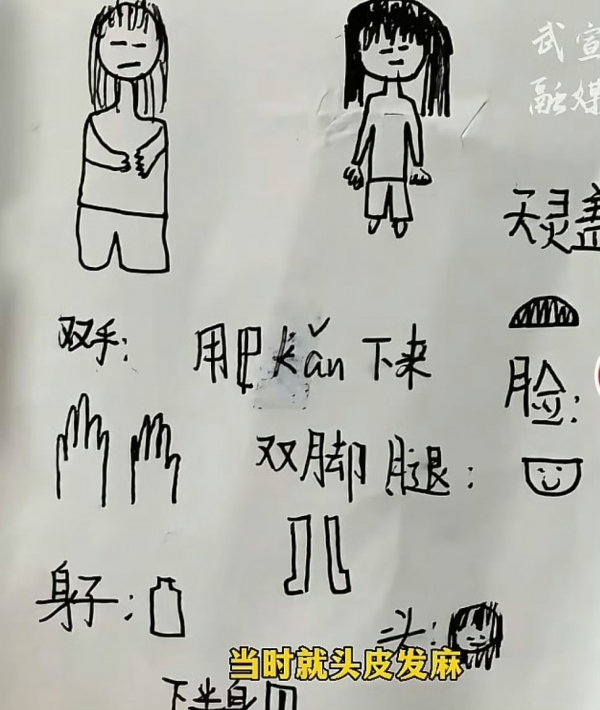 武宣
融媒
天灵盖
双手:
用 kǎn 下来
脸:
双脚腿:
身子:
头:
当时就头皮发麻
下半身